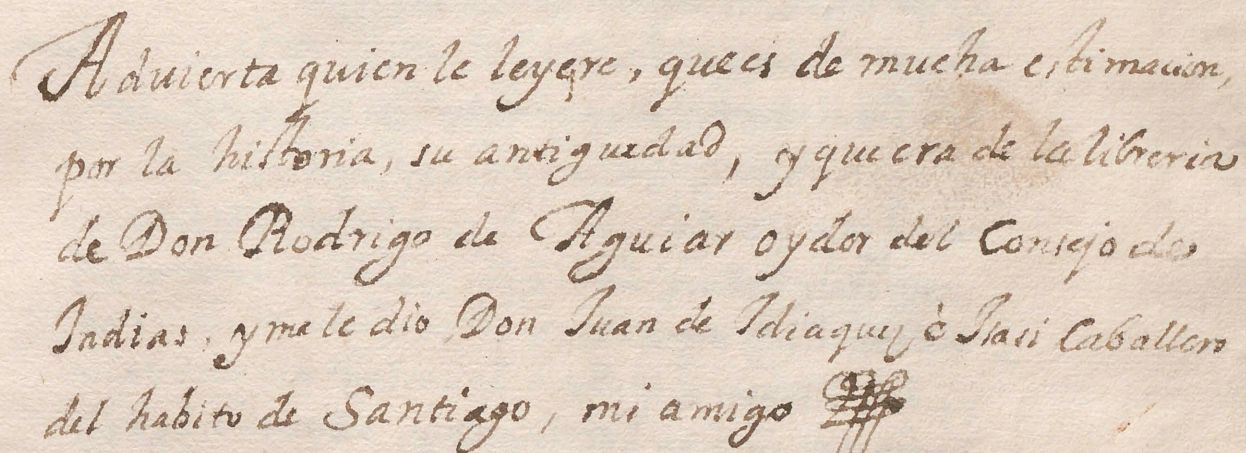 Aduierta quien le leyere, que es de mucha estimacion,
por la historia, su antiguedad, y que era de la libreria
de Don Rodrigo de Aguiar oydor del Consejo de
Indias, y me le dio Don Juan de Idiaquez ò Isasi Caballero
del habito de Santiago, mi amigo